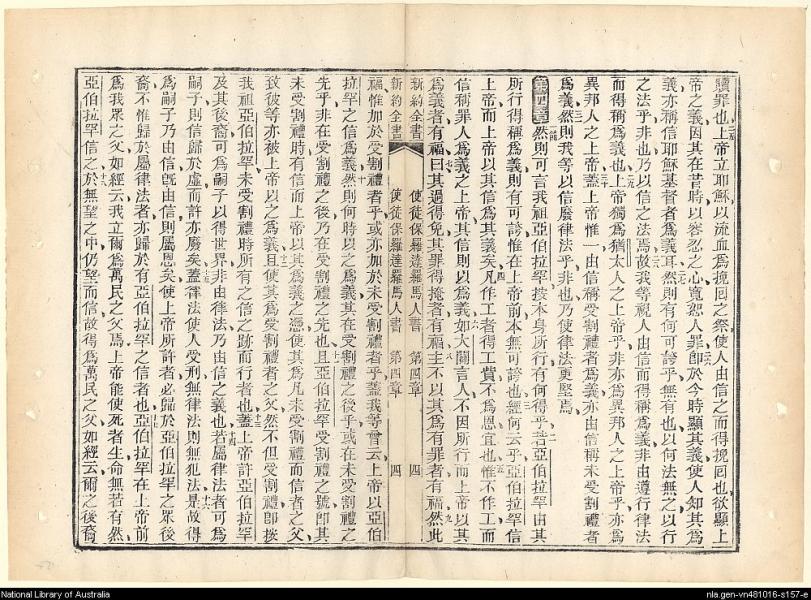 贖罪也上帝立耶穌以流血爲挽回之祭使人由信之而得挽回也欲顯上
帝之義因其在昔時以容忍之心寬恕人罪卽於今時顯其義使人知其爲
義亦稱信耶穌基督者爲義耳然則有何可誇乎無有也以何法無之以行
之法乎非也乃以信之法焉故我等視人由信而得稱爲義非由遵行律法
而得稱爲義也上帝獨爲猶太人之上帝乎非亦爲異邦人之上帝乎亦爲
異邦人之上帝蓋上帝惟一由信稱受割禮者爲義亦由信稱未受割禮者
爲義然則我等以信廢律法乎非也乃使律法更堅焉
第四章然則可言我祖亞伯拉罕按本身所行有何得乎若亞伯拉罕由其
所行得稱爲義則有可誇惟在上帝前本無可誇也經何云乎亞伯拉罕信
上帝而上帝以其信爲其義矣凡作工者得工貲不爲恩宜也惟不作工而
信稱罪人爲義之上帝其信則以爲義如大闢言人不因所行而上帝以其
爲義者有福曰其過得免其罪得掩者有福主不以其爲有罪者有福然此
新約全書 使徒保羅達羅馬人書 第四章 四
新約全書 使徒保羅達羅馬人書 第四章 四
福惟加於受割禮者乎或亦加於未受割禮者乎蓋我等曾云上帝以亞伯
拉罕之信爲義然則何時以之爲義其在受割禮之後乎或在未受割禮之
先乎非在受割禮之後乃在受割禮之先也且亞伯拉罕受割禮之號卽其
未受割禮時有信而上帝以其爲義之憑使其爲凡未受割禮而信者之父
致彼等亦被上帝以之爲義且使其爲受割禮者之父然不但受割禮卽按
我祖亞伯拉罕未受割禮時所有之信之跡而行者也蓋上帝許亞伯拉罕
及其後裔可爲嗣子以得世界非由律法乃由信之義也若屬律法者可爲
嗣子則信歸於虛而許亦廢矣蓋律法使人受刑無律法則無犯法是故得
爲嗣子乃由信旣由信則屬恩矣使上帝所許者必歸於亞伯拉罕之衆後
裔不惟歸於屬律法者亦歸於有亞伯拉罕之信者也亞伯拉罕在上帝前
爲我衆之父如經云我立爾爲萬民之父焉上帝能使死者生命無若有然
亞伯拉罕信之於無望之中仍望而信故得爲萬民之父如經云爾之後裔
National Library of Australia
nla.gen-vn481016-s157-e